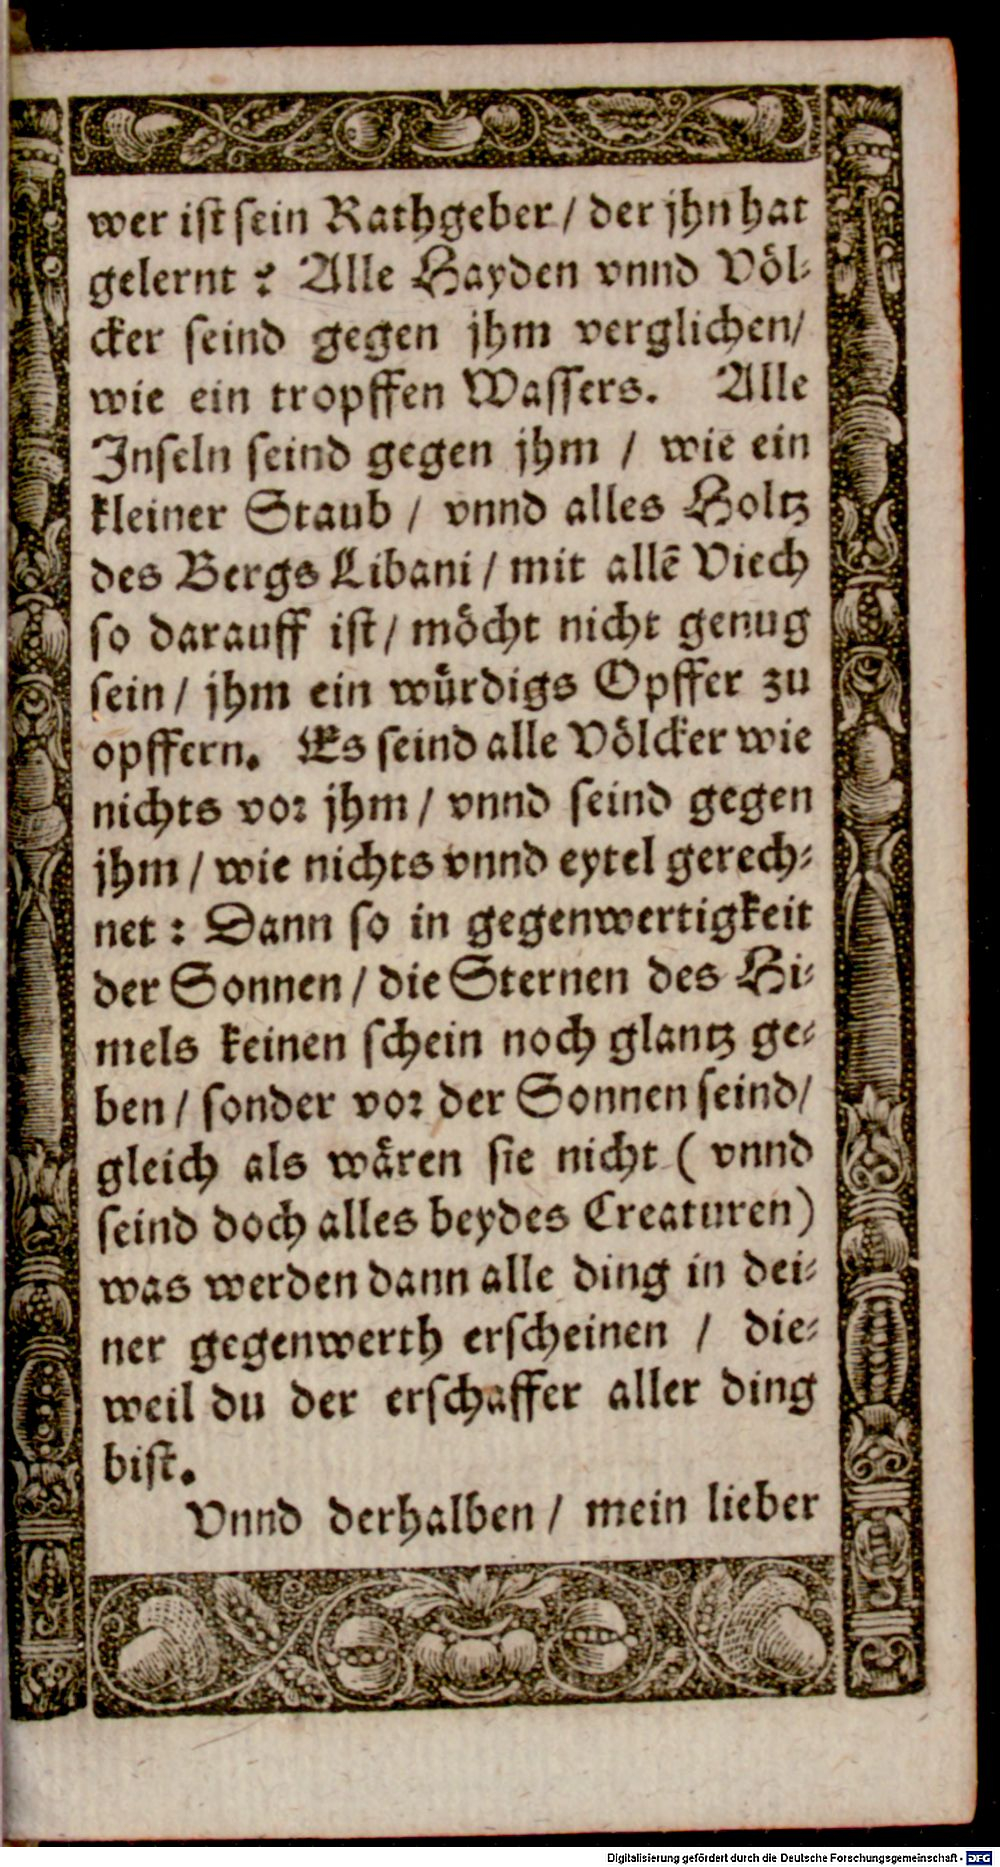 wer ist sein Rathgeber / der jhn hat
gelernt ? Alle Hayden vnnd Völ-
cker seind gegen jhm verglichen/
wie ein tropffen Wassers. Alle
Inseln seind gegen jhm / wie ein
kleiner Staub / vnnd alles Holtz
des Bergs Libani / mit allē Viech
so darauff ist / möcht nicht genug
sein / jhm ein würdigs Opffer zu
opffern. Es seind alle Völcker wie
nichts vor jhm / vnnd seind gegen
jhm / wie nichts vnnd eytel gerech-
net : Dann so in gegenwertigkeit
der Sonnen / die Sternen des Hi-
mels keinen schein noch glantz ge-
ben / sonder vor der Sonnen seind/
gleich als wären sie nicht ( vnnd
seind doch alles beydes Creaturen)
was werden dann alle ding in dei-
ner gegenwerth erscheinen / die-
weil du der erschaffer aller ding
bist.
Vnnd derhalben / mein lieber
Digitalisierung gefördert durch die Deutsche Forschungsgemeinschaft - DFG